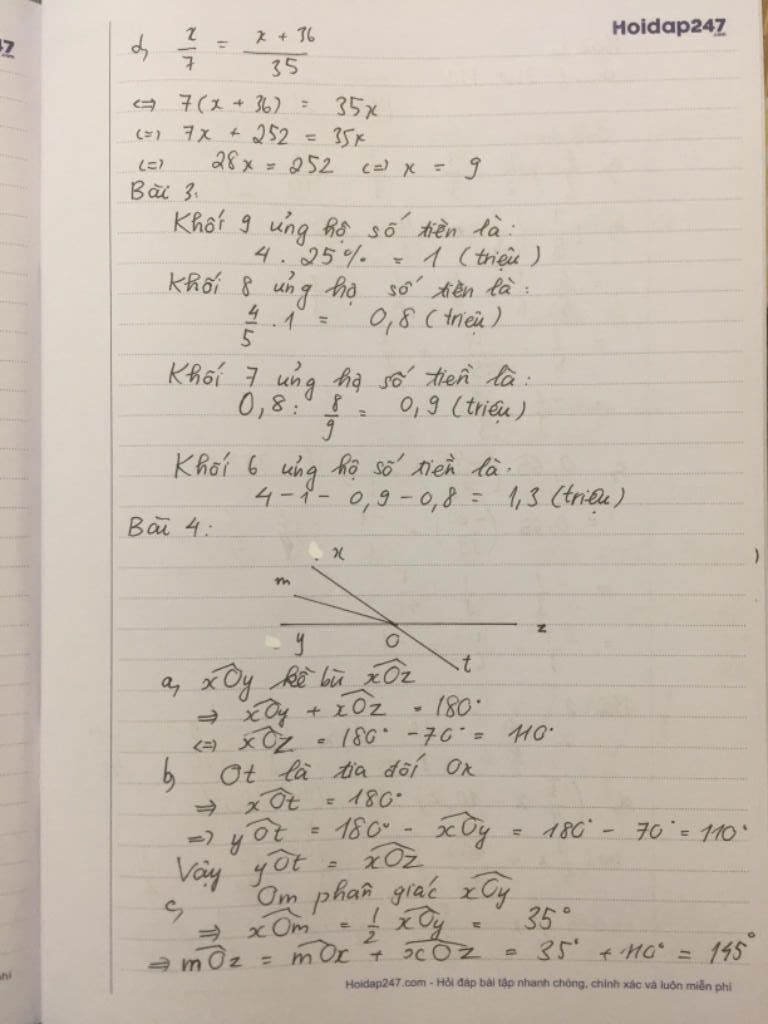 Hoidap247
.com
7
d, x/7 = (x + 36)/35
<=> 7(x + 36) = 35x
<=> 7x + 252 = 35x
<=> 28x = 252 <=> x = 9
Bài 3:
Khối 9 ủng hộ số tiền là:
4 . 25% = 1 (triệu)
Khối 8 ủng hộ số tiền là:
4/5 . 1 = 0,8 (triệu)
Khối 7 ủng hộ số tiền là:
0,8 : 8/9 = 0,9 (triệu)
Khối 6 ủng hộ số tiền là.
4 - 1 - 0,9 - 0,8 = 1,3 (triệu)
Bài 4:
x
m
y O z
t
a, xOy kề bù xOz
=> xOy + xOz = 180°
<=> xOz = 180° - 70° = 110°
b, Ot là tia đối Ox
=> xOt = 180°
=> yOt = 180° - xOy = 180° - 70° = 110°
Vậy yOt = xOz
c, Om phân giác xOy
=> xOm = 1/2 xOy = 35°
=> mOz = mOx + xOz = 35° + 110° = 145°
Hoidap247.com - Hỏi đáp bài tập nhanh chóng, chính xác và luôn miễn phí
phí